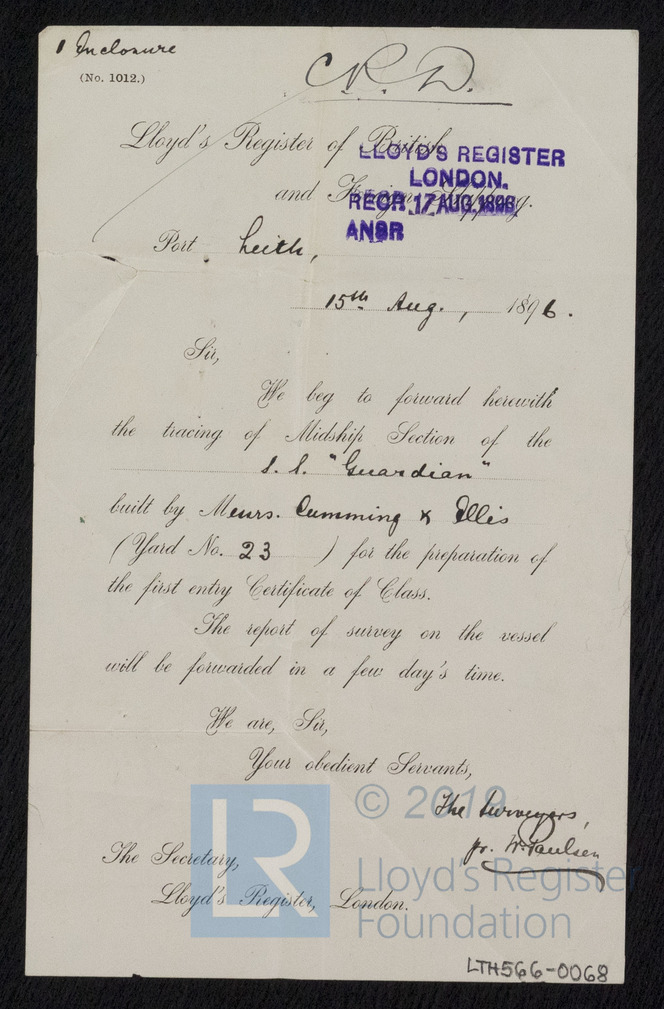 1 Enclosure
(No. 1012.)
C.R.D.
Lloyd's Register of British
and Foreign Shipping.
LLOYD'S REGISTER
LONDON.
RECR. 17 AUG. 1896
ANSR
Port Leith,
15th Aug., 1896.
Sir,
We beg to forward herewith
the tracing of Midship Section of the
s.s. "Guardian"
built by Messrs. Cumming & Ellis
(Yard No. 23 ) for the preparation of
the first entry Certificate of Class.
The report of survey on the vessel
will be forwarded in a few day's time.
We are, Sir,
Your obedient Servants,
The Surveyors,
pr. W. Paulsen
The Secretary,
Lloyd's Register, London.
LR
© 2019
Lloyd's Register
Foundation
LTH566-0068